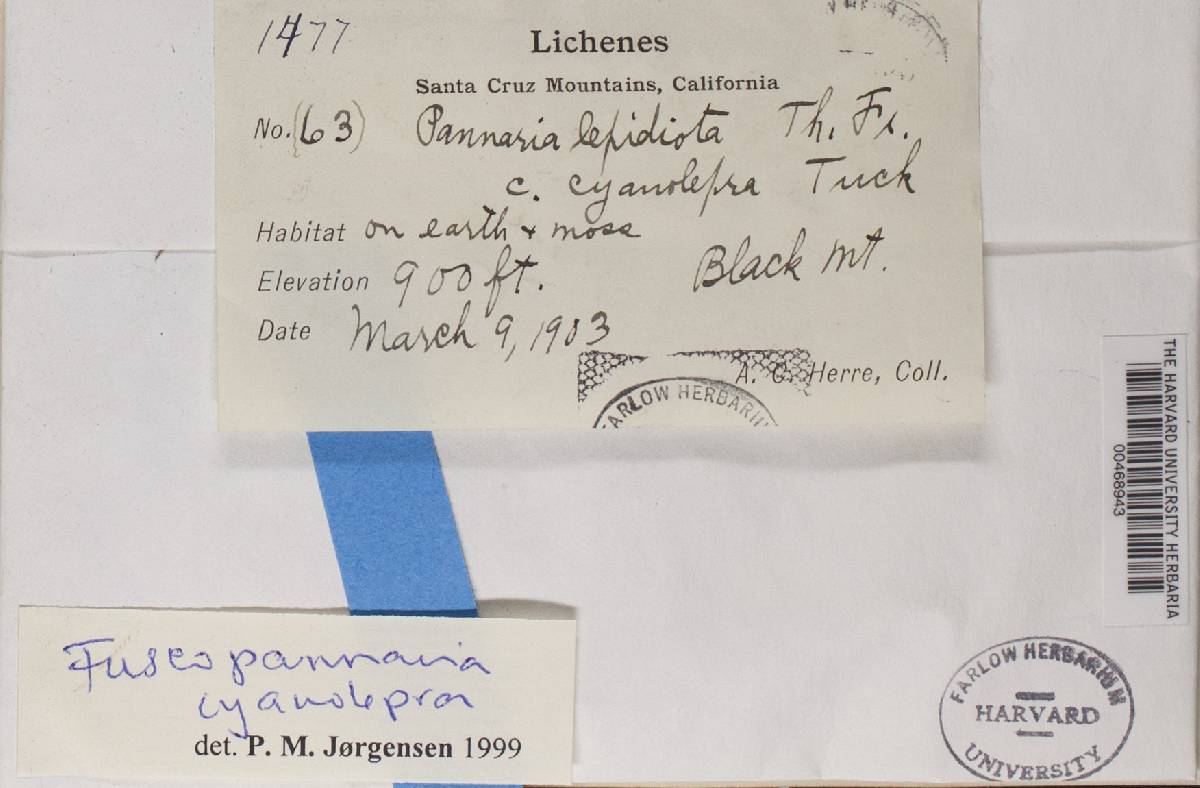 1477
Lichenes
Santa Cruz Mountains, California
No. (63) Pannaria lepidiota Th. Fr.
c. cyanolepra Tuck
Habitat on earth & moss
Elevation 900 ft. Black Mt.
Date March 9, 1903
A. C. Herre, Coll.
FARLOW HERBARIUM
THE HARVARD UNIVERSITY HERBARIA
00468943
Fuscopannaria
cyanolepra
det. P. M. Jørgensen 1999
FARLOW HERBARIUM
HARVARD
UNIVERSITY